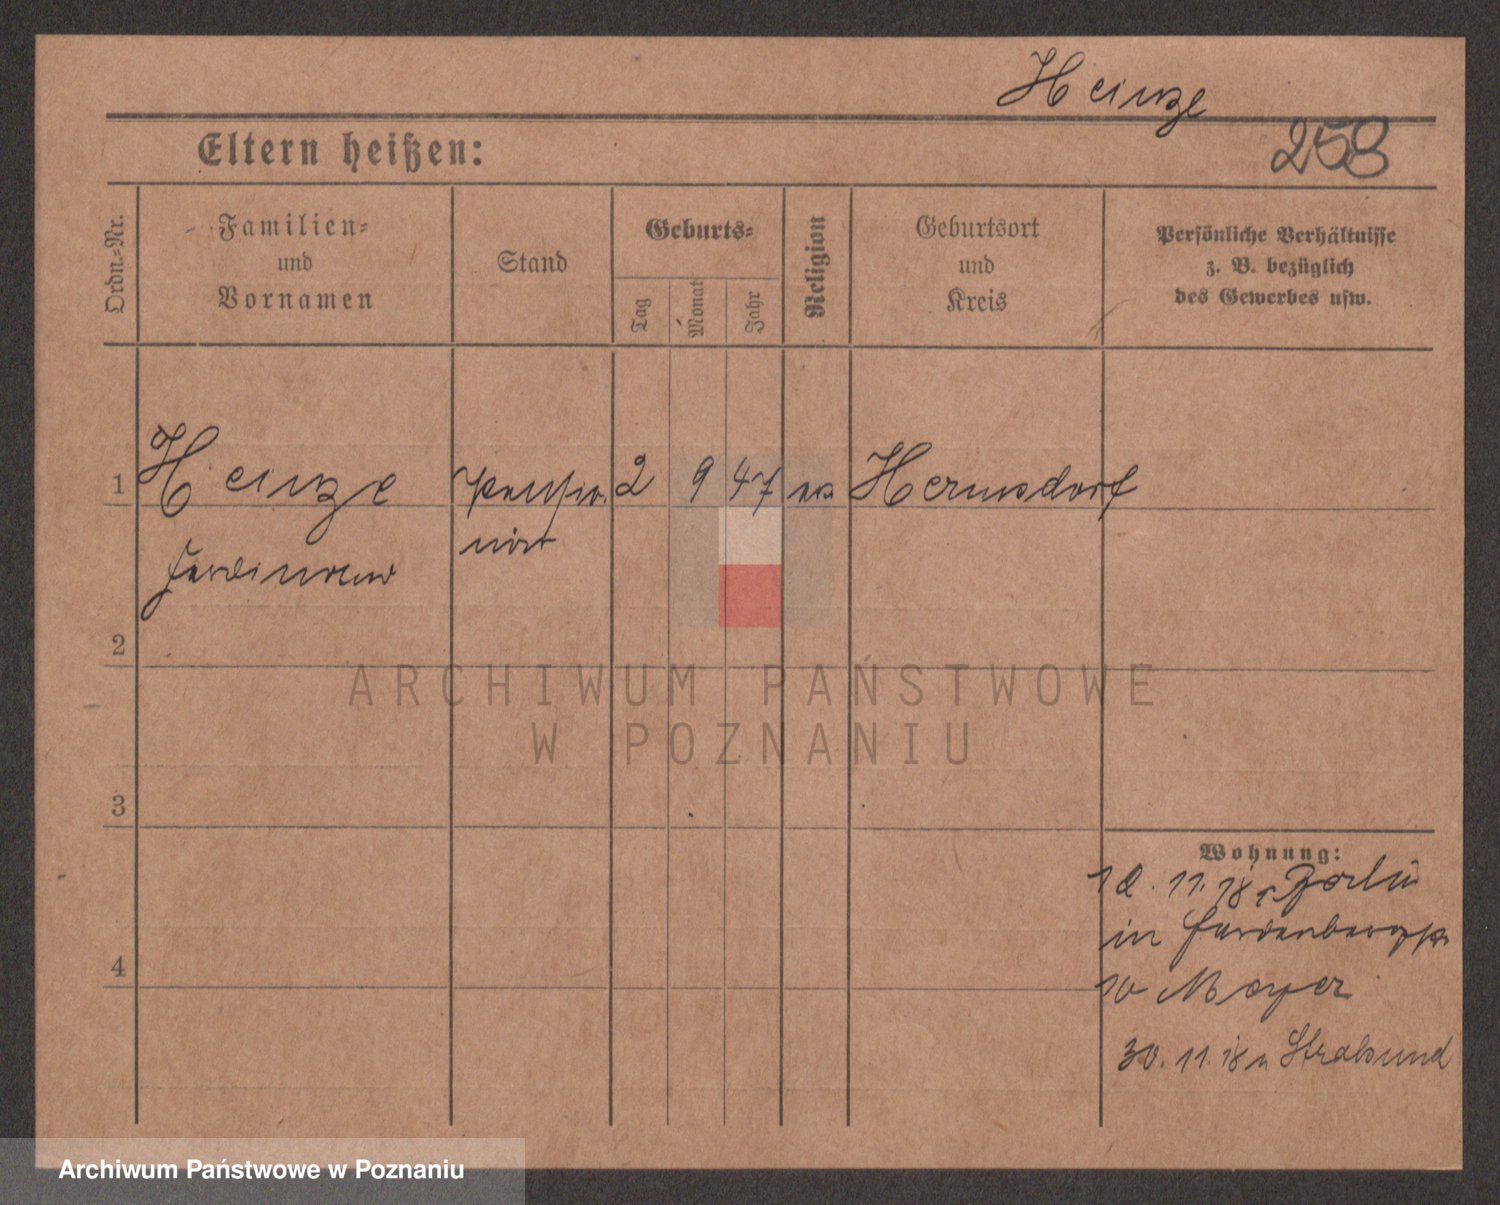 Heinze
258
Eltern heißen:
Ordn.-Nr.
Familien-
und
Vornamen
Stand
Geburts-
Tag
Monat
Jahr
Religion
Geburtsort
und
Kreis
Persönliche Verhältnisse
z. B. bezüglich
des Gewerbes usw.
1 Heinze Pensio- 2 9 47 Hermsdorf
när
Ferdinand
2
ARCHIWUM PAŃSTWOWE
W POZNANIU
3
Wohnung:
11. 18 Berlin
in
10 Mayer
4
30. 11. 18 n Stralsund
Archiwum Państwowe w Poznaniu